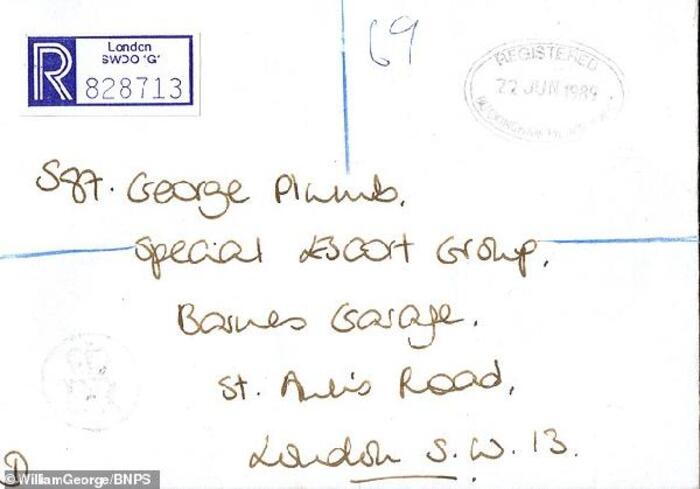 London
SWDO 'G'
R
828713
69
REGISTERED
22 JUN 1989
Sgt. George Plumb,
Special Escort Group,
Barnes Garage,
St. Road,
London S.W. 13.
©WilliamGeorge/BNPS